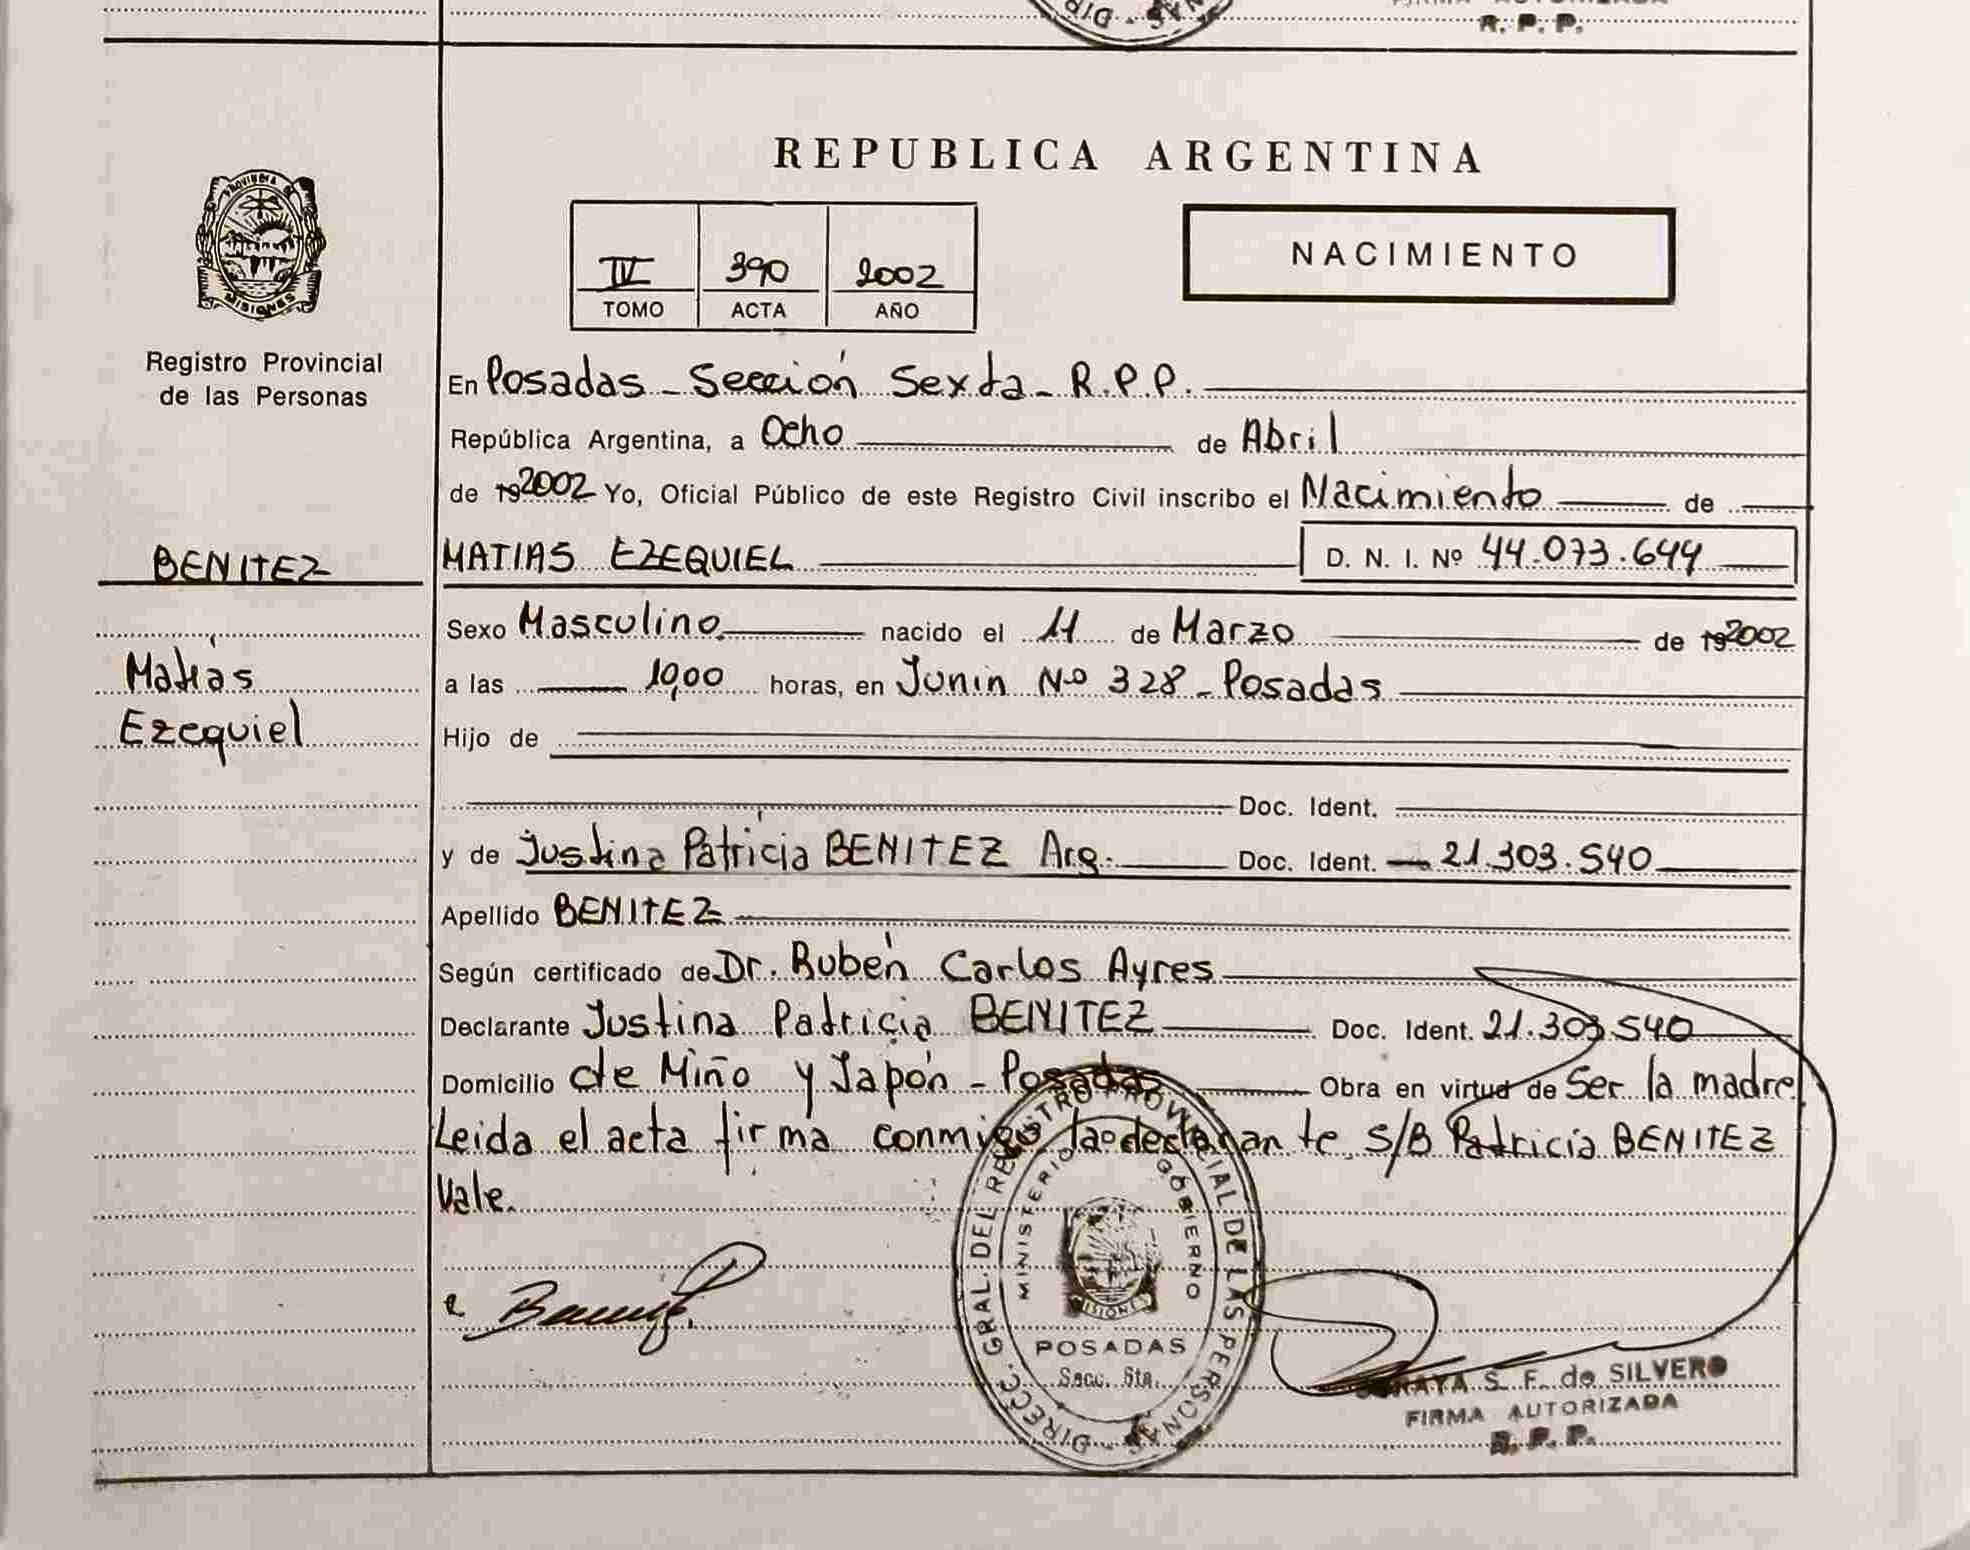 R. P. P.
REPUBLICA ARGENTINA
PROVINCIA DE
MISIONES
Registro Provincial
de las Personas
IV 390 2002
TOMO ACTA AÑO
NACIMIENTO
En Posadas - Sección Sexta - R.P.P.
República Argentina, a Ocho de Abril
de 192002 Yo, Oficial Público de este Registro Civil inscribo el Nacimiento de
BENITEZ MATIAS EZEQUIEL D. N. I. Nº 44.073.644
Sexo Masculino nacido el 11 de Marzo de 192002
Matías
a las 10,00 horas, en Junin Nº 328 - Posadas
Ezequiel
Hijo de
Doc. Ident.
y de Justina Patricia BENITEZ Arg. Doc. Ident. 21.303.540
Apellido BENITEZ
Según certificado de Dr. Rubén Carlos Ayres
Declarante Justina Patricia BENITEZ Doc. Ident. 21.303.540
Domicilio de Miño y Japón - Posadas Obra en virtud de Ser la madre
Leida el acta firma conmigo la declarante, S/B Patricia BENITEZ
Vale.
DIRECC. GRAL. DEL REGISTRO PROVINCIAL DE LAS PERSONAS
MINISTERIO GOBIERNO
MISIONES
POSADAS
Secc. 6ta.
S. F. de SILVERO
FIRMA AUTORIZADA
R. P. P.